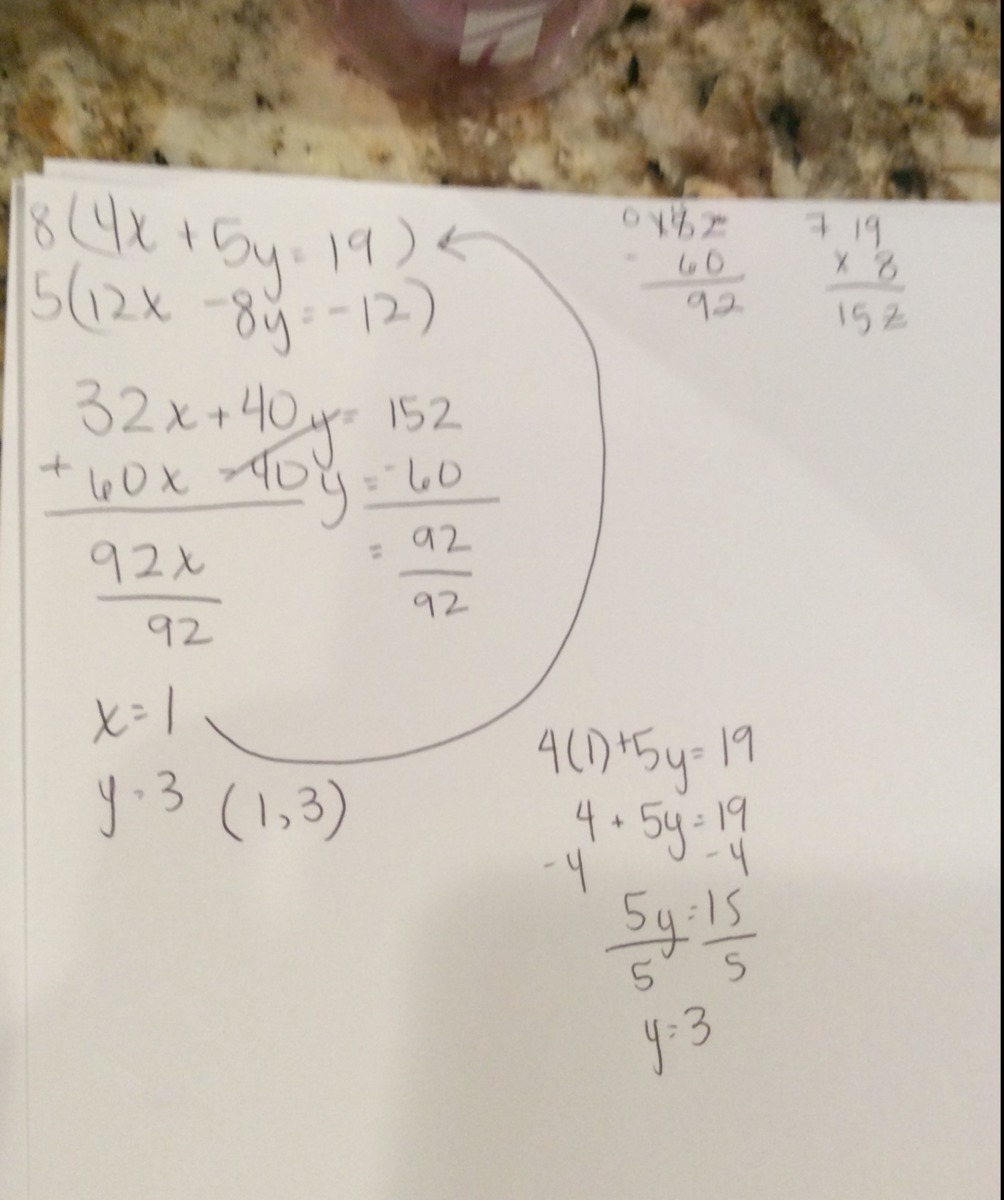 8(4x + 5y = 19)
5(12x - 8y = -12)
32x + 40y = 152
+ 60x - 40y = -60
92x = 92
92 92
x = 1
y = 3 (1,3)
- 60
92
7 19
x 8
152
4(1) + 5y = 19
4 + 5y = 19
-4 -4
5y = 15
5 5
y = 3